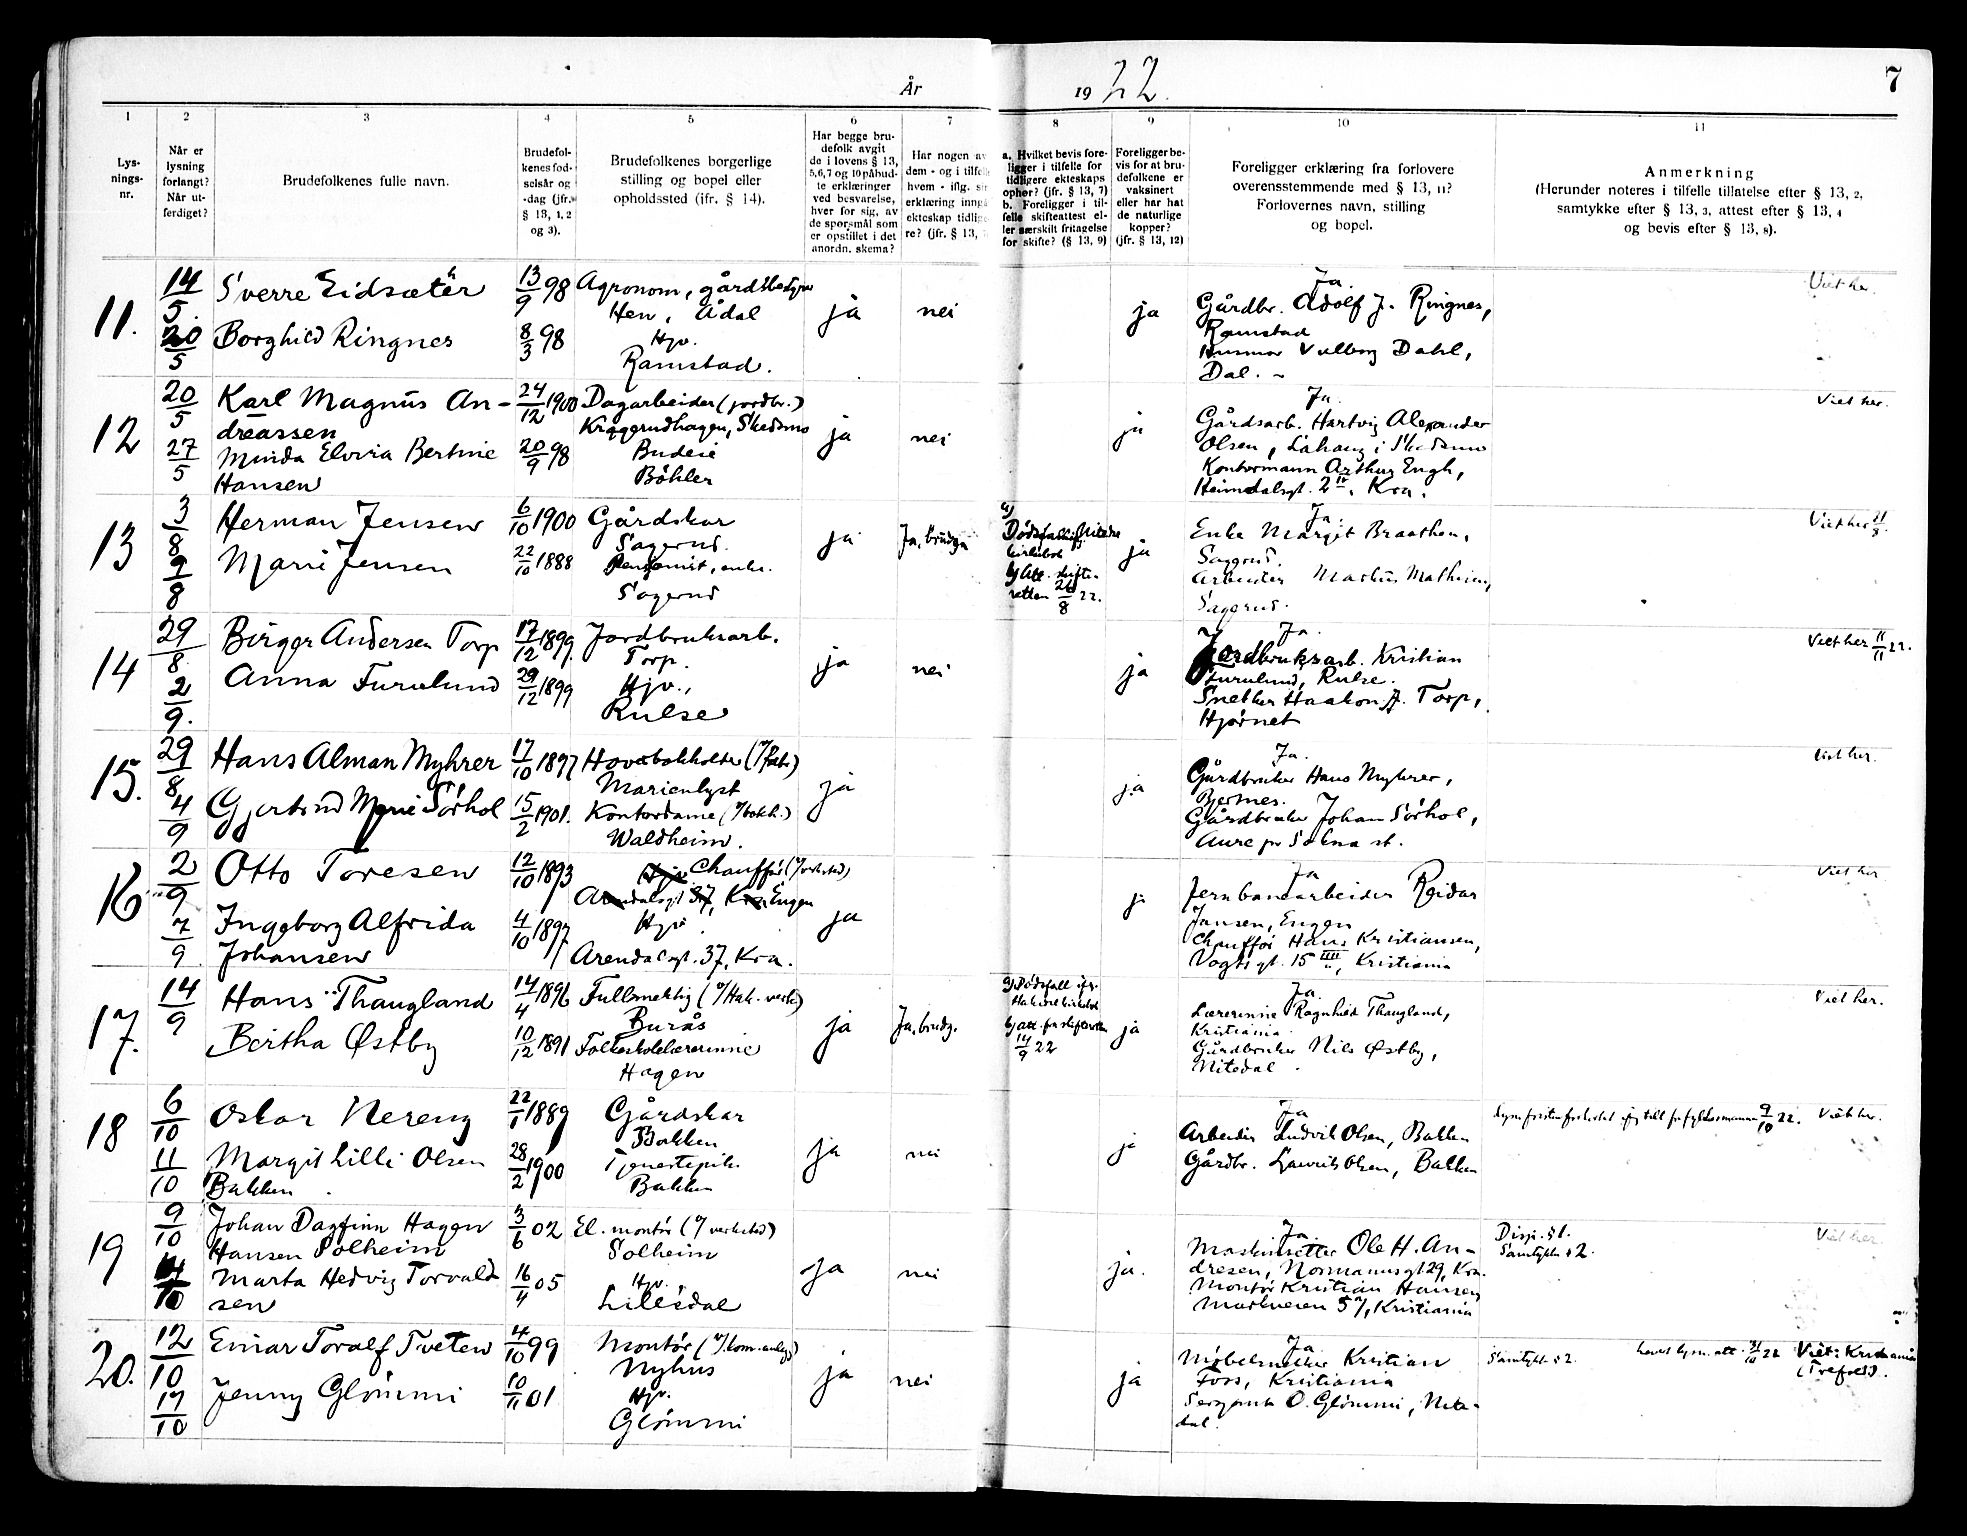 År 1922. 7
1 2 3 4 5 6 7 8 9 10 11
Lys-
nings-
nr.
Når er
lysning
forlangt?
Når ut-
ferdiget?
Brudefolkenes fulle navn.
Brudefol-
kenes fød-
selsår og
-dag (jfr.
§ 13, 1, 2
og 3).
Brudefolkenes borgerlige
stilling og bopel eller
opholdssted (jfr. § 14).
Har begge bru-
defolk avgit
de i lovens § 13,
5,6,7 og 10 påbud-
te erklæringer
ved besvarelse,
hver for sig, av
de spørsmål som
er opstillet i det
anordn. skema?
Har nogen av
dem - og i tilfelle
hvem - iflg. sin
erklæring inngå
ekteskap tidlige-
re? (jfr. § 13,
a. Hvilket bevis fore-
ligger i tilfelle for
tidligere ekteskaps
ophør? (jfr. § 13, 7)
b. Foreligger i til-
felle skifteattest el-
ler særskilt fritagelse
for skifte? (§ 13, 9)
Foreligger be-
vis for at bru-
defolkene er
vaksinert
eller har hat
de naturlige
kopper?
(jfr. § 13, 12)
Foreligger erklæring fra forlovere
overensstemmende med § 13, 11?
Forlovernes navn, stilling
og bopel.
Anmerkning
(Herunder noteres i tilfelle tillatelse efter § 13, 2,
samtykke efter § 13, 3, attest efter § 13, 4
og bevis efter § 13, 8).
11. 14/5 Sverre Eidsæter 13/9 98 Agronom, gårdsbestyrer
Hen, Ådal ja nei ja
20/5 Borghild Ringnes 8/3 98 Hjv.
Ramstad.
Ja.
Gårdbr. Adolf J. Ringnes,
Ramstad
Dahl,
Dal.
Viet her.
12 20/5 Karl Magnus An-
dreassen 24/12 1900 Dagarbeider (jordbr.)
Krággerudhagen, Skedsmo ja nei ja
27/5 Minda Elvira Bertine
Hansen 20/9 98 Budeie
Böhler
Ja.
Gårdsarb. Hartvig Alexander
Olsen, i Skedsmo
Kontormann Arthur Engh,
Heimdalsgt. 2 IV, Kra.
Viet her.
13 3/8 Herman Jensen 6/10 1900 Gårdskar
Sagerud. ja Ja, brudgr.
9/8 Marie Jensen 22/10 1888 Pensjonist, enke.
Sagerud
a)
Dødsfall ifl. Nitedal
kirkebok
b) Att. skifte-
retten 26/8 22.
ja
Ja
Enke Margit Braathen,
Sagerud.
Arbeider Markus Mathisen,
Sagerud.
Viet her
14 29/8 Birger Andersen Torp 17/12 1899. Jordbruksarb.
Torp. ja nei ja
2/9. Anna Furulund 29/12 1899 Hjv.,
Rulse
Ja.
Jordbruksarb. Kristian
Furulund, Rulse.
Snekker Haakon A. Torp,
Hjørnet
Viet her 11/11 22.
15. 29/8 Hans Alman Myhrer 17/10 1897 Hovedbokholder (v/fabr)
Marienlyst ja ja
4/9 Gjertrud Marie Sörhol 15/2 1901. Kontordame (v/bokh.)
Waldheim.
Ja.
Gårdbruker Hans Myhrer,
Bjertnes.
Gårdbruker Johan Sörhol,
Aure pr Solna st.
Viet her.
16 2/9 Otto Toresen 12/10 1893 Hjv. Chauffør (v/verksted)
Arendalsgt 37, Kra. Engen ja ja
7/9 Ingeborg Alfrida
Johansen 4/10 1897 Hjv.
Arendalsgt. 37, Kra.
Ja
Jernbanearbeider Reidar
Jansen, Engen
Chauffør Hans Kristiansen,
Vogts gt. 15 IIII, Kristiania
Viet her
17. 14/9 Hans Thaugland 14/4 1896 Fullmektig (v/Hak. verk)
Burås ja Ja, brudg.
Bertha Østby 10/12 1891 Folkeskolelærerinne
Hagen
a) Dødsfall ifg.
Hakedal kirkebok
b) att. fra skifteretten
14/9 22
ja
Ja.
Lærerinne Ragnhild Thaugland,
Kristiania.
Gårdbruker Nils Østby,
Nitedal.
Viet her.
18 6/10 Oskar Nereng 22/1 1889 Gårdskar
Bakken ja nei ja
11/10 Margit Lilli Olsen
Bakken 28/2 1900 Tjenestepike
Bakken
Ja
Arbeider Ludvik Olsen, Bakken
Gårdbr. Laurits Olsen, Bakken
Lysn.fristen forkortet ifg till. fra fylkesmannen 9/10 22. Viet her.
19 9/10 Johan Dagfinn Hagen
Hansen Solheim 3/6 02 El. montör (v/verksted)
Solheim ja nei ja.
14/10 Marta Hedvig Torvald-
sen 16/4 05 Hjv.
Lillesdal
Ja.
Maskinsetter Ole H. An-
dresen, Normannsgt 29, Kra.
Montör Kristian Hansen
Markveien 57, Kristiania
Disp. § 1.
Samtykke § 2.
Viet her
20. 12/10 Einar Toralf Tveten 4/10 99 Montör (v/kom.anlegg)
Nyhus ja nei ja
17/10 Jenny Glömmi 10/11 01 Hjv.
Glömmi
Ja
Möbelsnekker Kristian
Foss, Kristiania
Sersjant O. Glömmi, Nite-
dal.
Samtykke § 2. Viet: Kristiania
(Trefold).